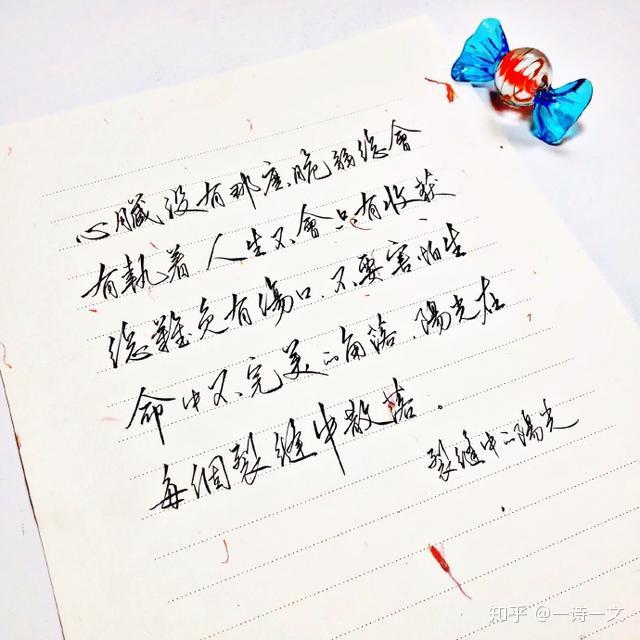 心臟没有那麽脆弱總會
有執着人生不會只有收获
總難免有傷口.不要害怕生
命中不完美的角落.陽光在
每個裂縫中散落。
裂縫中的陽光
知乎 @一诗一文